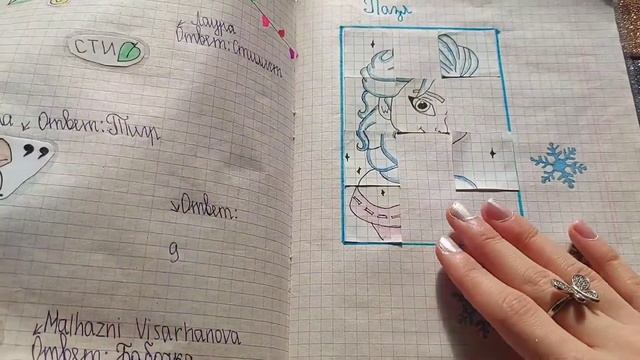 Лаура
Ответ: Стиллет
СТИ
Ответ: Тир
,,
Ответ:
9
Malhazni Visarhanova
Ответ: Бабочка
Пазл